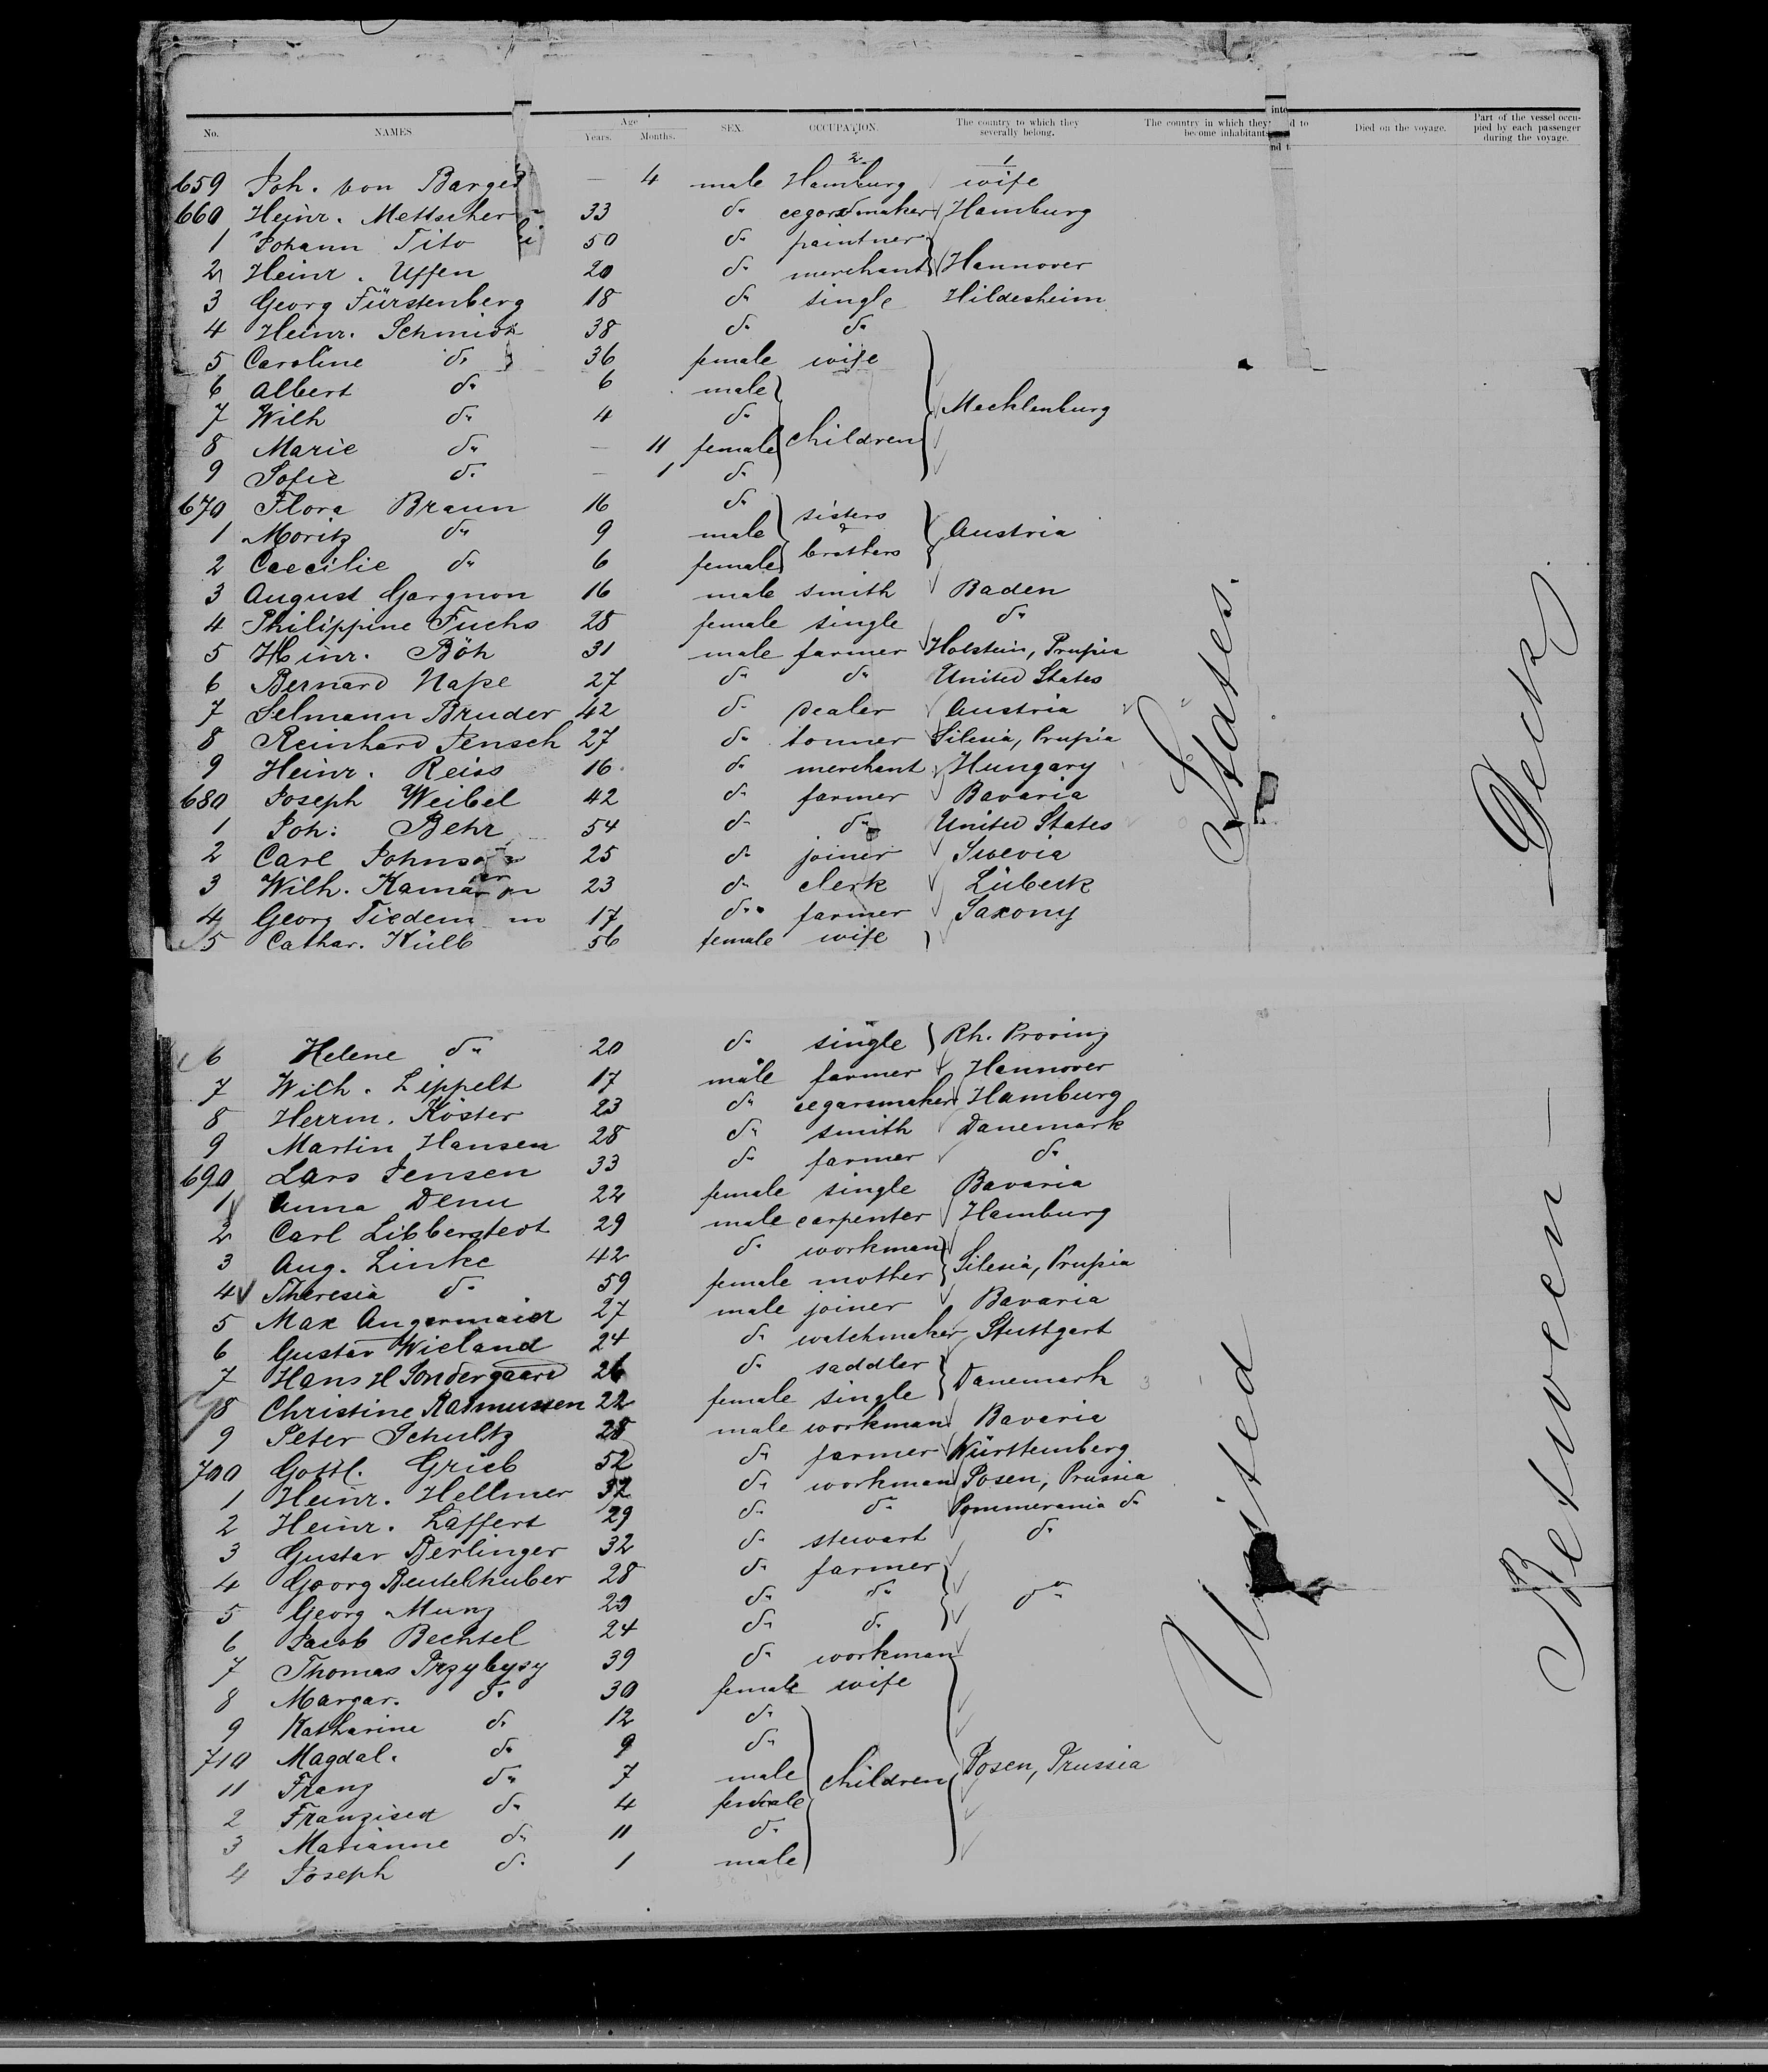 No. NAMES Age Years. Months. SEX. OCCUPATION. The country to which they severally belong. The country in which they inte d to become inhabitants Died on the voyage. Part of the vessel occupied by each passenger during the voyage.
2 1
659 Joh. von Barge — 4 male Hamburg wife
660 Heinr. Mettscher 33 do cegarsmaker Hamburg
1 Johann Tito 50 do paintner
2 Heinr. Uffen 20 do merchant Hannover
3 Georg Fürstenberg 18 do single Hildesheim
4 Heinr. Schmidt 38 do do
5 Caroline do 36 female wife
6 Albert do 6 male
7 Wilh do 4 do Mecklenburg
8 Marie do — 11 female children
9 Sofie do — 1 do
670 Flora Braun 16 do sisters
1 Moritz do 9 male & Austria
2 Caecilie do 6 female brothers
3 August Gargnon 16 male smith Baden
4 Philippine Fuchs 28 female single do
5 Heinr. Böh 31 male farmer Holstein, Prußia
6 Bernard Naße 27 do do United States
7 Selmann Bruder 42 do dealer Austria
8 Reinhard Jensch 27 do tonner Silesia, Prußia
9 Heinr. Reiss 16 do merchant Hungary
680 Joseph Weibel 42 do farmer Bavaria
1 Joh: Behr 54 do do United States
2 Carl Johnson 25 do joiner Swevia
3 Wilh. 23 do clerk Lübeck
4 Georg Tiedem nn 17 do farmer Saxony
5 Cathar. Külb 56 female wife
6 Helene do 20 do single Rh. Proving
7 Wilh. Lippelt 17 male farmer Hannover
8 Herrm. Köster 23 do segarsmaker Hamburg
9 Martin Hansen 28 do smith Danemark
690 Lars Jensen 33 do farmer do
1 Anna Denu 22 female single Bavaria
2 Carl Libberstedt 29 male carpenter Hamburg
3 Aug. Linke 42 do workman Silesia, Prußia
4 Theresia do 59 female mother
5 Max Angermaier 27 male joiner Bavaria
6 Gustav Wieland 24 do watchmaker Stuttgart
7 Hans H Sondergaard 26 do saddler Danemark
8 Christine Rasmussen 22 female single
9 Peter Schultz 28 male workman Bavaria
700 Gottl. Grieb 52 do farmer Württemberg
1 Heinr. Hellmer 32 do workman Posen, Prussia
2 Heinr. Laffert 29 do do Pommerania do
3 Gustav Derlinger 32 do stewart do
4 Georg Beutelhuber 28 do farmer
5 Georg Munz 29 do do do
6 Jacob Bechtel 24 do do
7 Thomas Przybysy 39 do workman
8 Margar. do 30 female wife
9 Katharine do 12 do
710 Magdal. do 9 do
11 Franz do 7 male children Posen, Prussia
2 Franzisca do 4 female
3 Marianne do 11 do
4 Joseph do 1 male
United States.
Between Deck